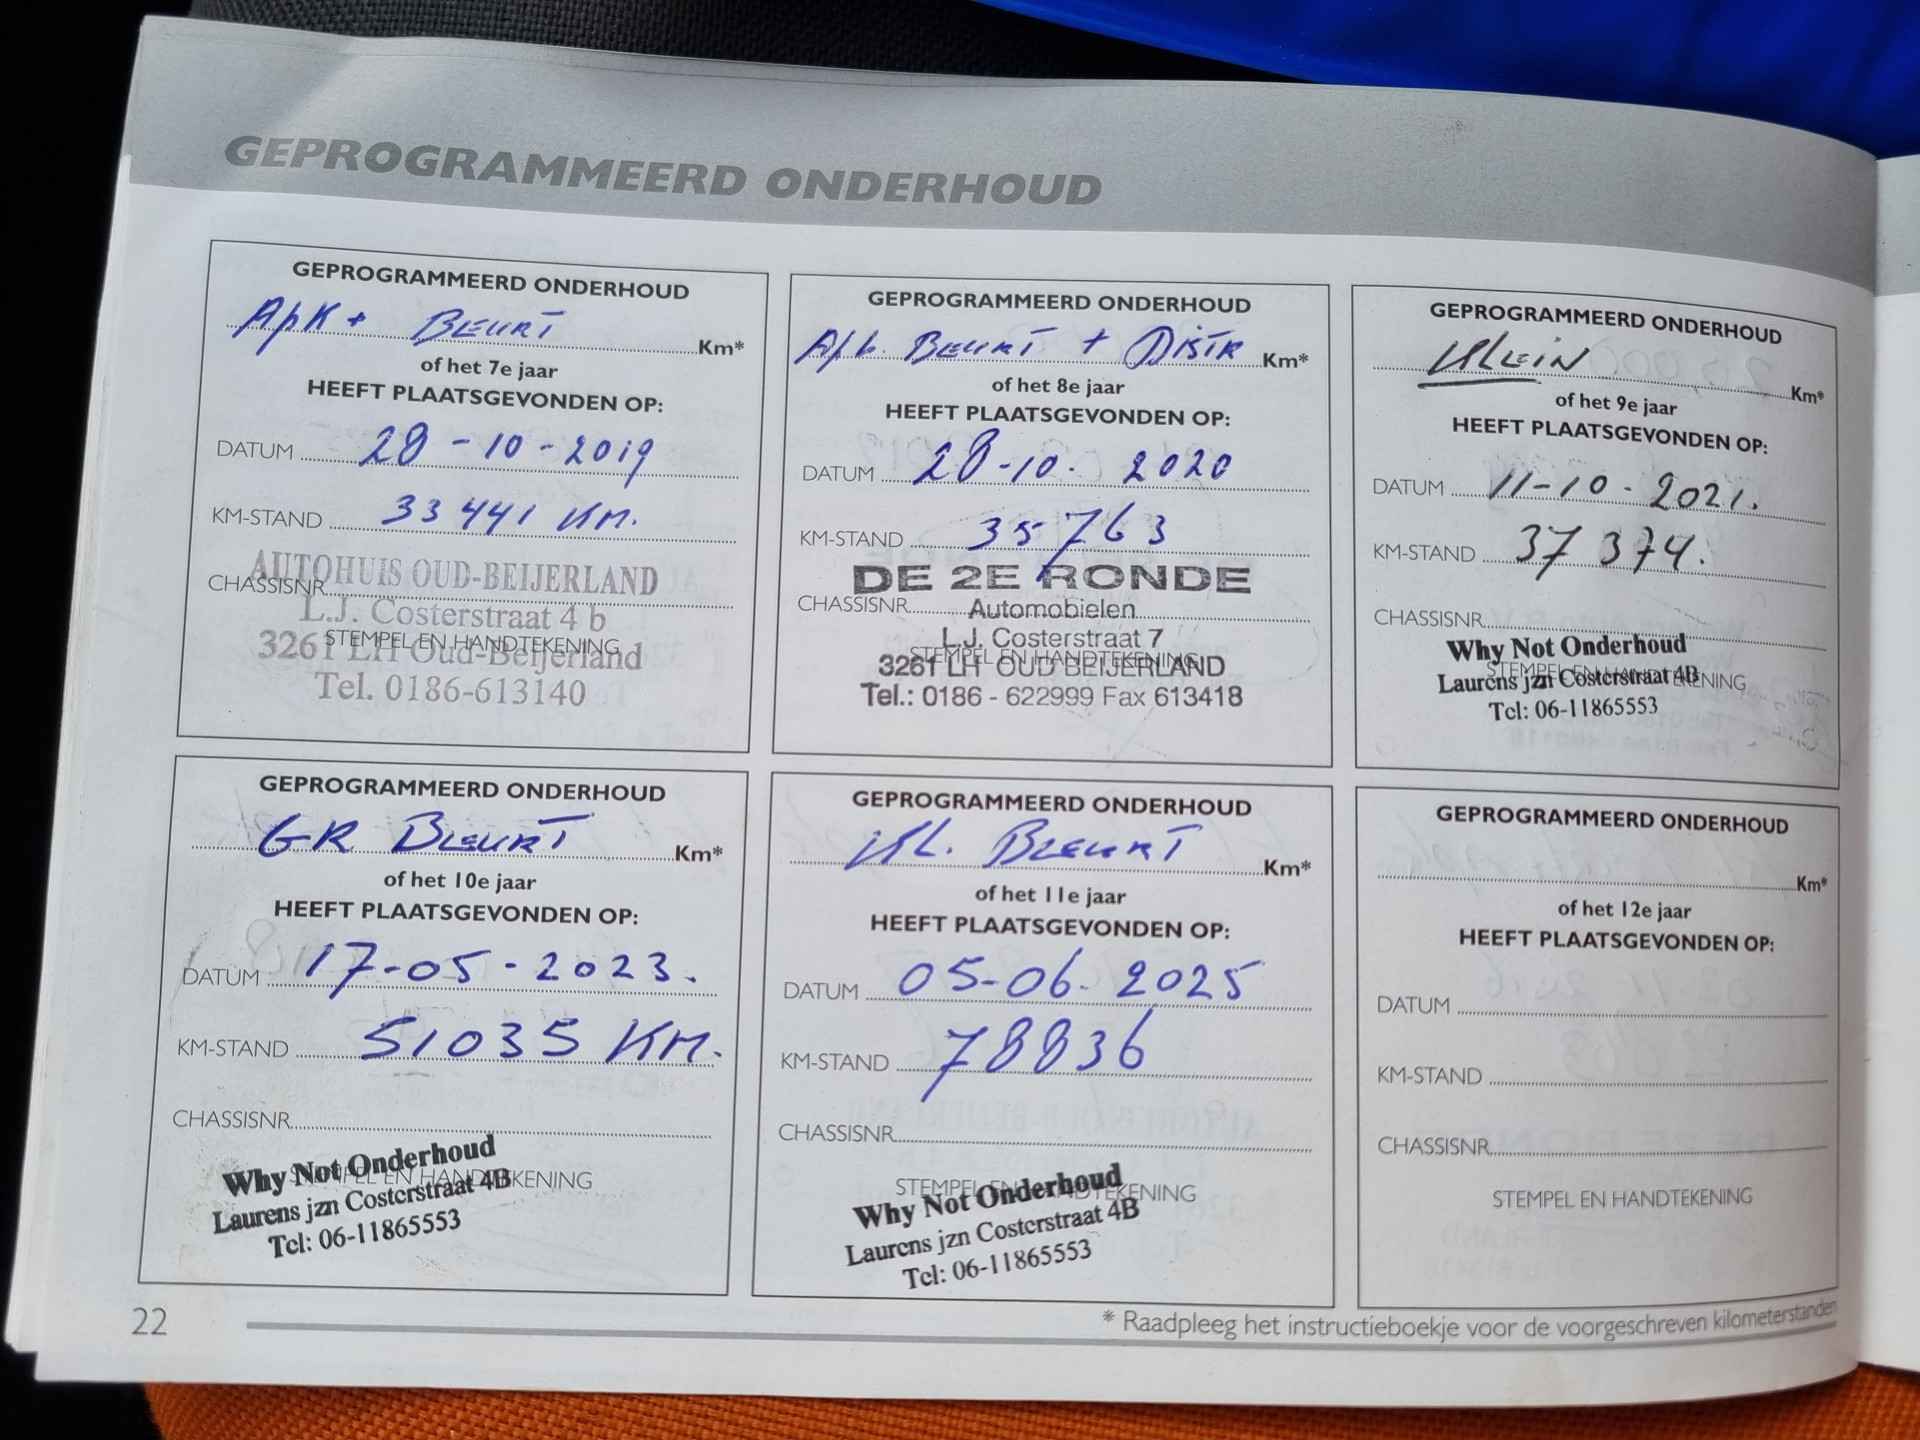 GEPROGRAMMEERD ONDERHOUD
GEPROGRAMMEERD ONDERHOUD
APK + BEURT Km*
of het 7e jaar
HEEFT PLAATSGEVONDEN OP:
DATUM 28-10-2019
KM-STAND 33441 KM.
CHASSISNR
AUTOHUIS OUD-BEIJERLAND
L.J. Costerstraat 4 b
STEMPEL EN HANDTEKENING
3261 LH Oud-Beijerland
Tel. 0186-613140
GEPROGRAMMEERD ONDERHOUD
BEURT + DISTR Km*
of het 8e jaar
HEEFT PLAATSGEVONDEN OP:
DATUM 28-10-2020
KM-STAND 35763
DE 2E RONDE
CHASSISNR
Automobielen
L.J. Costerstraat 7
STEMPEL EN HANDTEKENING
3261 LH OUD BEIJERLAND
Tel.: 0186 - 622999 Fax 613418
GEPROGRAMMEERD ONDERHOUD
KLEIN Km*
of het 9e jaar
HEEFT PLAATSGEVONDEN OP:
DATUM 11-10-2021.
KM-STAND 37374.
CHASSISNR
Why Not Onderhoud
STEMPEL EN HANDTEKENING
Laurens jzn Costerstraat 4B
Tel: 06-11865553
GEPROGRAMMEERD ONDERHOUD
GR BEURT Km*
of het 10e jaar
HEEFT PLAATSGEVONDEN OP:
DATUM 17-05-2023.
KM-STAND 51035 KM.
CHASSISNR
Why Not Onderhoud
STEMPEL EN HANDTEKENING
Laurens jzn Costerstraat 4B
Tel: 06-11865553
GEPROGRAMMEERD ONDERHOUD
KL. BEURT Km*
of het 11e jaar
HEEFT PLAATSGEVONDEN OP:
DATUM 05-06-2025
KM-STAND 78836
CHASSISNR
STEMPEL EN HANDTEKENING
Why Not Onderhoud
Laurens jzn Costerstraat 4B
Tel: 06-11865553
GEPROGRAMMEERD ONDERHOUD
Km*
of het 12e jaar
HEEFT PLAATSGEVONDEN OP:
DATUM
KM-STAND
CHASSISNR
STEMPEL EN HANDTEKENING
22
* Raadpleeg het instructieboekje voor de voorgeschreven kilometerstanden